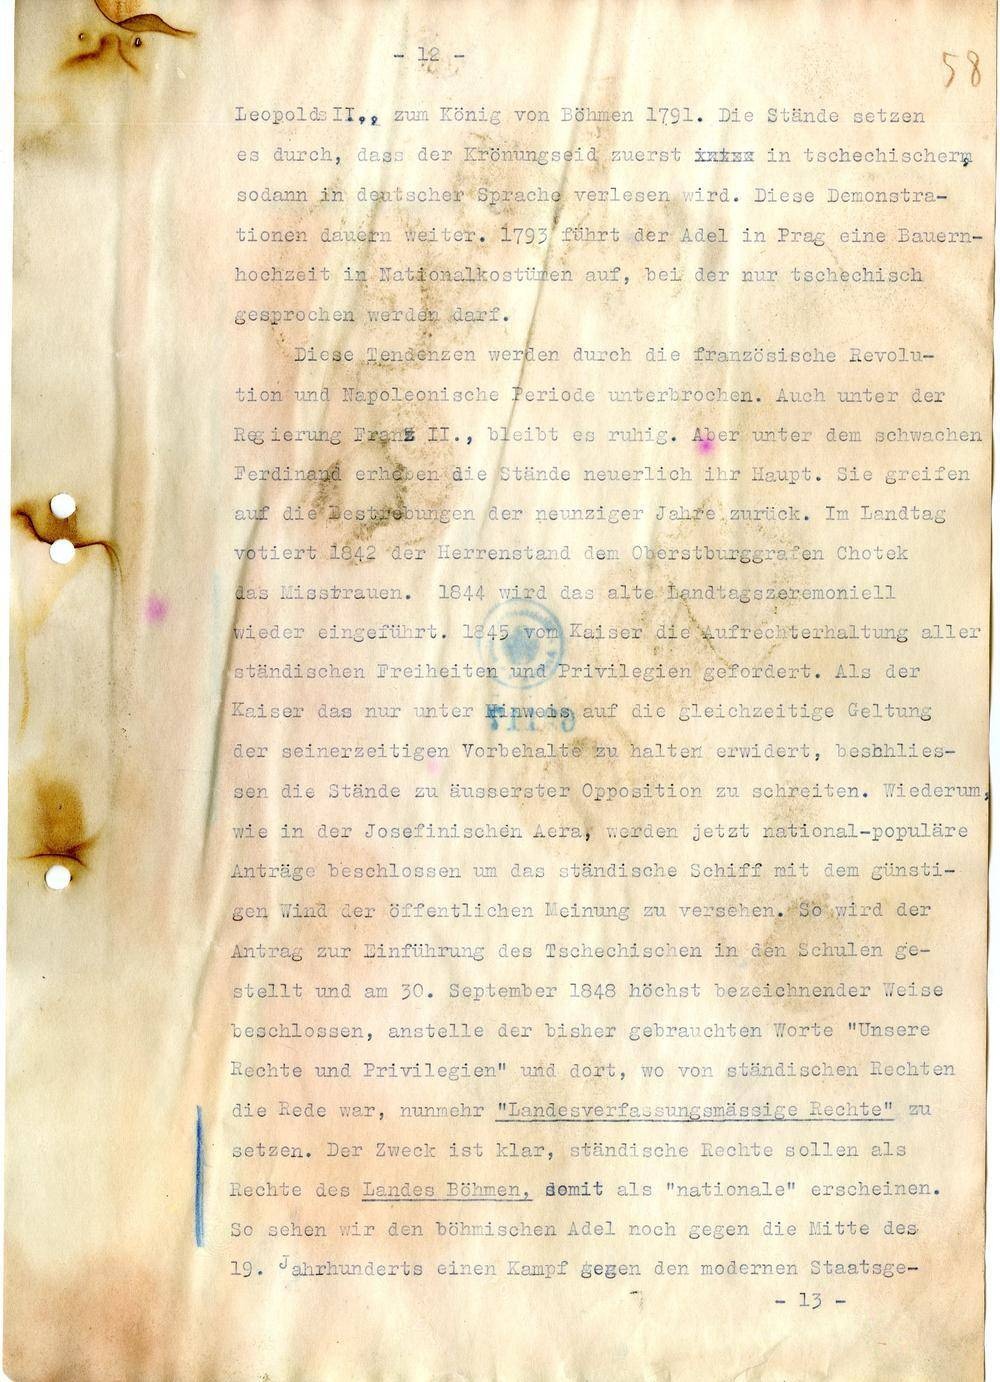 - 12 -
58
Leopolds II., zum König von Böhmen 1791. Die Stände setzen
es durch, dass der Krönungseid zuerst in tschechischer,
sodann in deutscher Sprache verlesen wird. Diese Demonstra-
tionen dauern weiter. 1793 führt der Adel in Prag eine Bauern-
hochzeit in Nationalkostümen auf, bei der nur tschechisch
gesprochen werden darf.
Diese Tendenzen werden durch die französische Revolu-
tion und Napoleonische Periode unterbrochen. Auch unter der
Regierung Franz II., bleibt es ruhig. Aber unter dem schwachen
Ferdinand erheben die Stände neuerlich ihr Haupt. Sie greifen
auf die Bestrebungen der neunziger Jahre zurück. Im Landtag
votiert 1842 der Herrenstand dem Oberstburggrafen Chotek
das Misstrauen. 1844 wird das alte Landtagszeremoniell
wieder eingeführt. 1845 vom Kaiser die Aufrechterhaltung aller
ständischen Freiheiten und Privilegien gefordert. Als der
Kaiser das nur unter Hinweis auf die gleichzeitige Geltung
der seinerzeitigen Vorbehalte zu halten erwidert, beshhlies-
sen die Stände zu äusserster Opposition zu schreiten. Wiederum,
wie in der Josefinischen Aera, werden jetzt national-populäre
Anträge beschlossen um das ständische Schiff mit dem günsti-
gen Wind der öffentlichen Meinung zu versehen. So wird der
Antrag zur Einführung des Tschechischen in den Schulen ge-
stellt und am 30. September 1848 höchst bezeichnender Weise
beschlossen, anstelle der bisher gebrauchten Worte "Unsere
Rechte und Privilegien" und dort, wo von ständischen Rechten
die Rede war, nunmehr "Landesverfassungsmässige Rechte" zu
setzen. Der Zweck ist klar, ständische Rechte sollen als
Rechte des Landes Böhmen, somit als "nationale" erscheinen.
So sehen wir den böhmischen Adel noch gegen die Mitte des
19. Jahrhunderts einen Kampf gegen den modernen Staatsge-
- 13 -